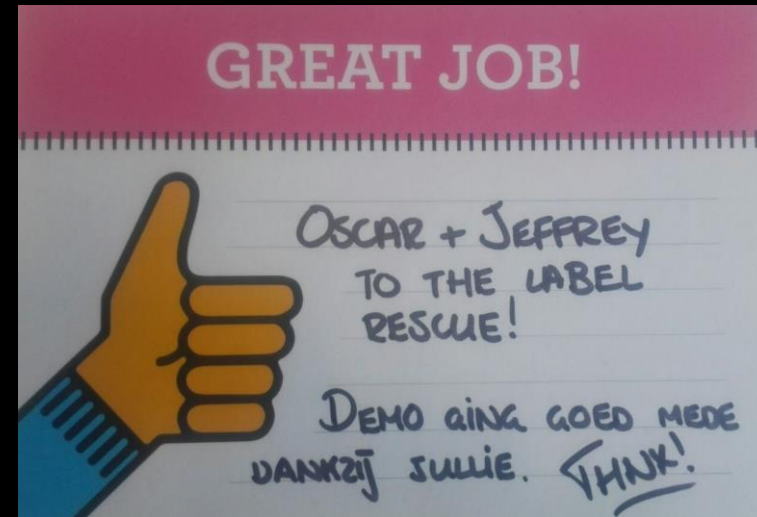 GREAT JOB!
OSCAR + JEFFREY
TO THE LABEL
RESCUE!
DEMO GING GOED MEDE
DANKZIJ JULLIE. THNK!